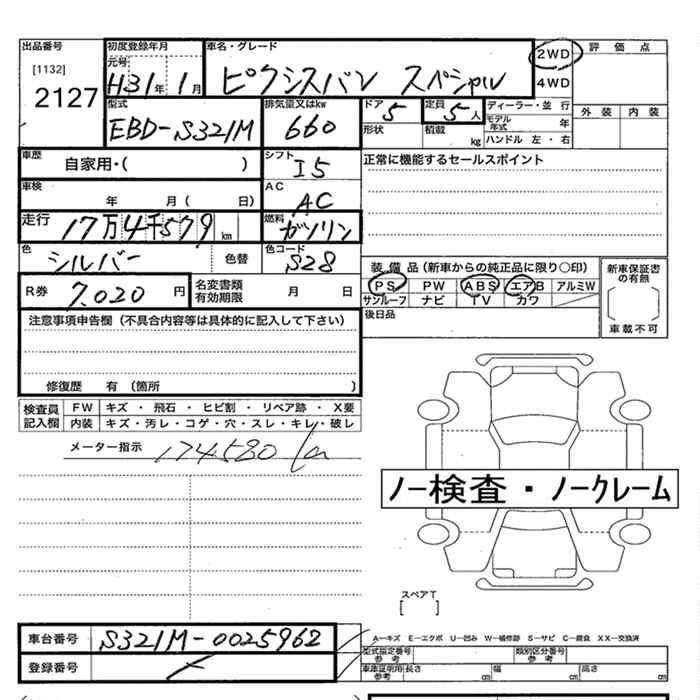 出品番号 初度登録年月 車名・グレード 2WD 評価点
[1132] 元号
2127 H31年 1月 ピクシスバン スペシャル 4WD
型式 排気量又はkw ドア 定員 ディーラー・並行 外装 内装
EBD-S321M 660 5 5人 モデル年式 年
形状 積載 kg ハンドル 左・右
車歴 自家用・( ) シフト I5 正常に機能するセールスポイント
車検 年 月( 日) AC AC
走行 17万4千579km 燃料 ガソリン
色 シルバー 色替 色コード S28
装備品(新車からの純正品に限り○印) 新車保証書の有無
R券 7.020円 名変書類有効期限 月 日 PS PW ABS エアB アルミW
サンルーフ ナビ TV カワ
[ ] 車載不可
注意事項申告欄(不具合内容等は具体的に記入して下さい) 後日品
修復歴 有(箇所 )
検査員記入欄 FW キズ・飛石・ヒビ割・リペア跡・X要
内装 キズ・汚レ・コゲ・穴・スレ・キレ・破レ
メーター指示 174580
ノー検査・ノークレーム
スペアT
[ ]
車台番号 S321M-0025962 A-キズ E-エクボ U-凹み W-補修跡 S-サビ C-腐食 XX-交換済
登録番号 型式指定番号 参考 類別区分番号 参考
車庫証明用参考 長さ cm 幅 cm 高さ cm